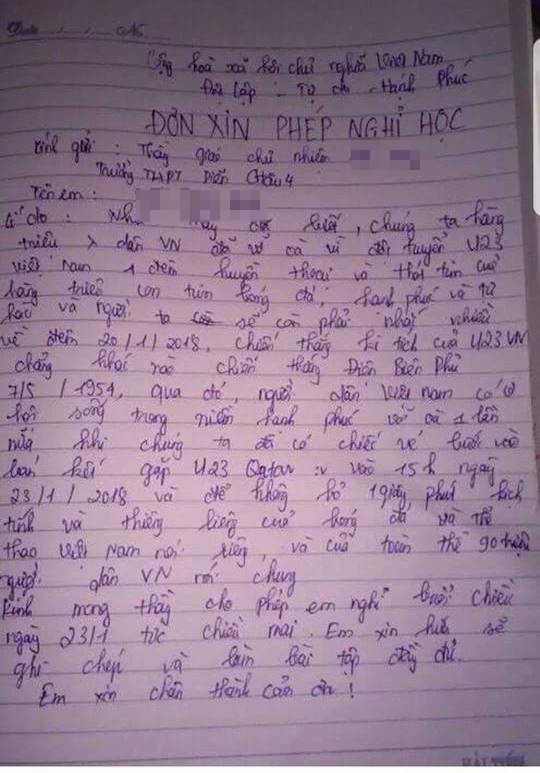 Date / / No
Cộng hoà xã hội chủ nghĩa Việt Nam
Độc lập - Tự do - Hạnh Phúc
ĐƠN XIN PHÉP NGHỈ HỌC
Kính gửi : Thầy giáo chủ nhiệm
Trường THPT Diễn Châu 4
Tên em :
Lí do : Như thầy đã biết, chúng ta hàng
triệu dân VN đã vỡ oà vì đội tuyển U23
việt Nam 1 đêm huyền thoại và thót tim của
hàng triệu con tim bóng đá, hạnh phúc và tự
hào và người ta sẽ còn phải nhắc nhiều
về đêm 20/1/2018, chiến thắng kì tích của U23 VN
chẳng khác nào chiến thắng Điện Biên Phủ
7/5/1954, qua đó, người dân Việt Nam có cơ
hội sống trong niềm hạnh phúc vỡ oà 1 lần
nữa khi chúng ta đã có chiếc vé bước vào
bán kết gặp U23 Qatar :v vào 15h ngày
23/1/2018 và để không bỏ 1 giây phút kịch
tính và thiêng liêng của bóng đá và thể
thao Việt Nam nói riêng, và của toàn thể 90 triệu
người dân VN nói chung
Kính mong thầy cho phép em nghỉ buổi chiều
ngày 23/1 tức chiều mai. Em xin hứa sẽ
ghi chép và làm bài tập đầy đủ.
Em xin chân thành cảm ơn !
HẢI TIẾN